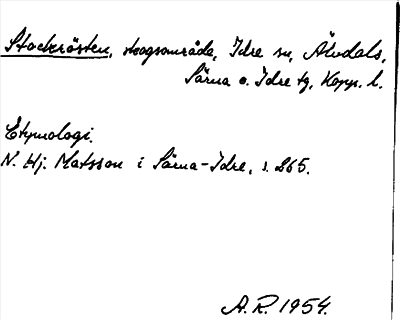 Stockrösten, skogsområde, Idre sn, Älvdals,
Särna o. Idre tg, Kopp. l.
Etymologi.
N. Hj. Matsson i Särna-Idre, s. 265.
A. R. 1954.